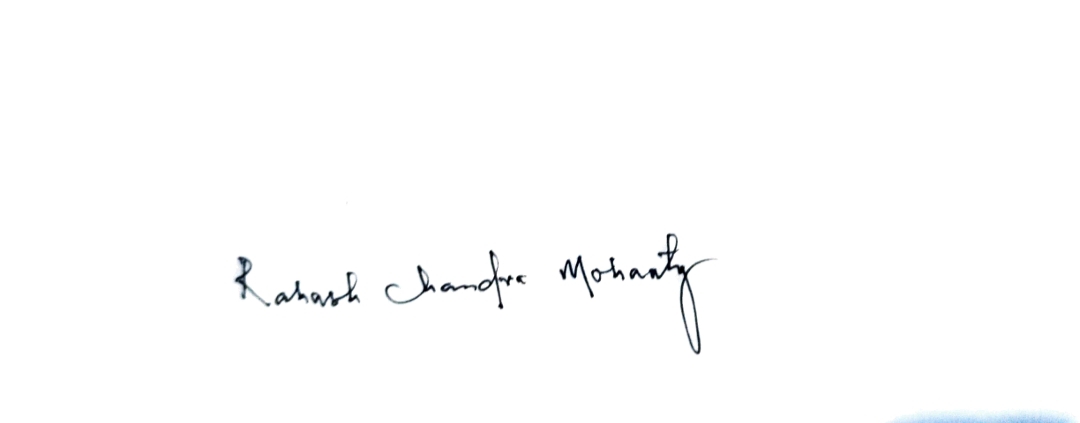 Rahash Chandra Mohanty